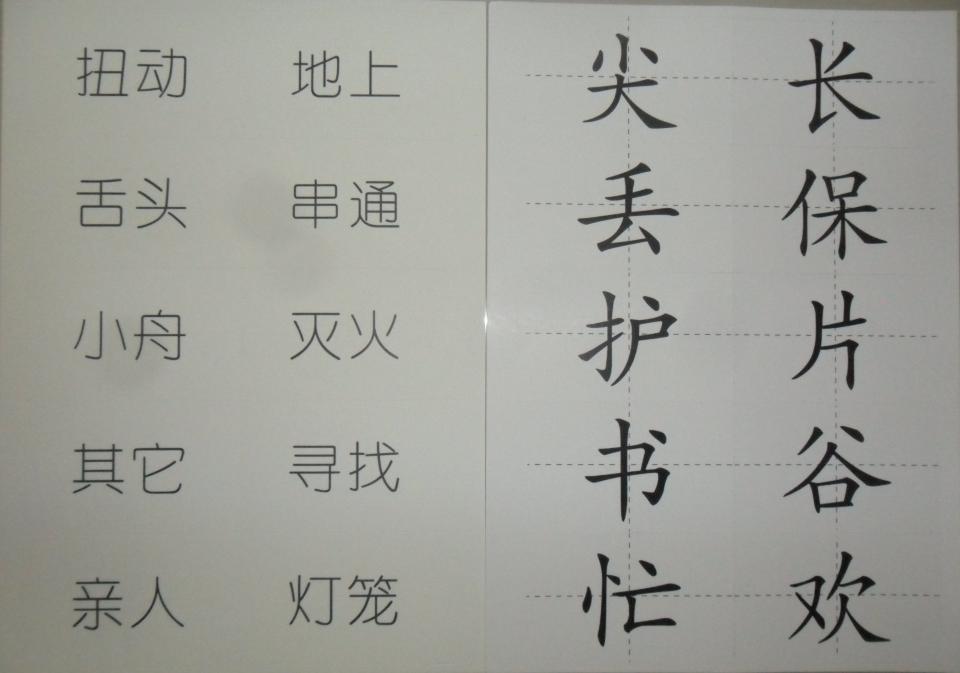 扭动 地上
舌头 串通
小舟 灭火
其它 寻找
亲人 灯笼
尖 长
丢 保
护 片
书 谷
忙 欢